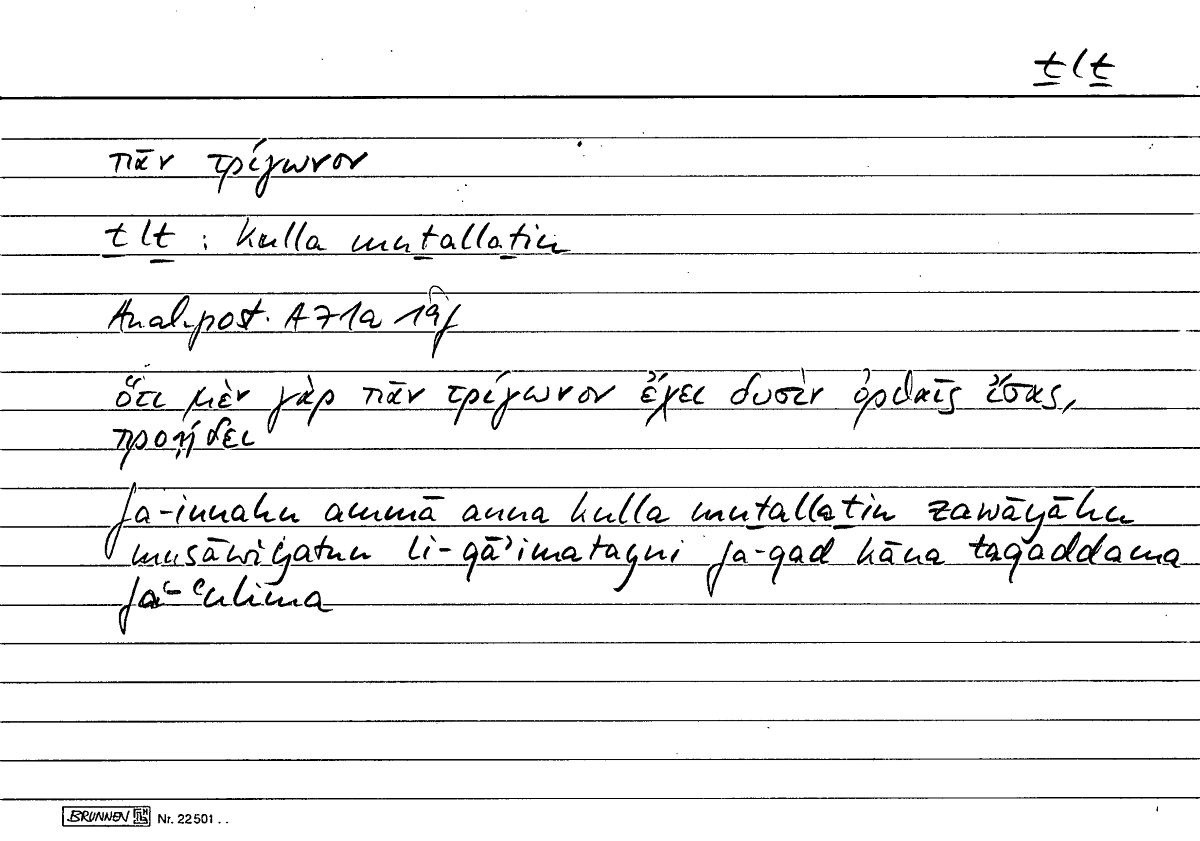 ṯlṯ
πᾶν τρίγωνον
ṯlṯ : kulla muṯallaṯin
Anal. post. A 71a 19f
ὅτι μὲν γὰρ πᾶν τρίγωνον ἔχει δυσὶν ὀρθαῖς ἴσας,
προῄδει
fa-innahu ammā anna kulla muṯallaṯin zawāyāhu
musāwiyatun li-qāʾimatayni fa-qad kāna taqaddama
fa-ʿulima
BRUNNEN Nr. 22501 . .